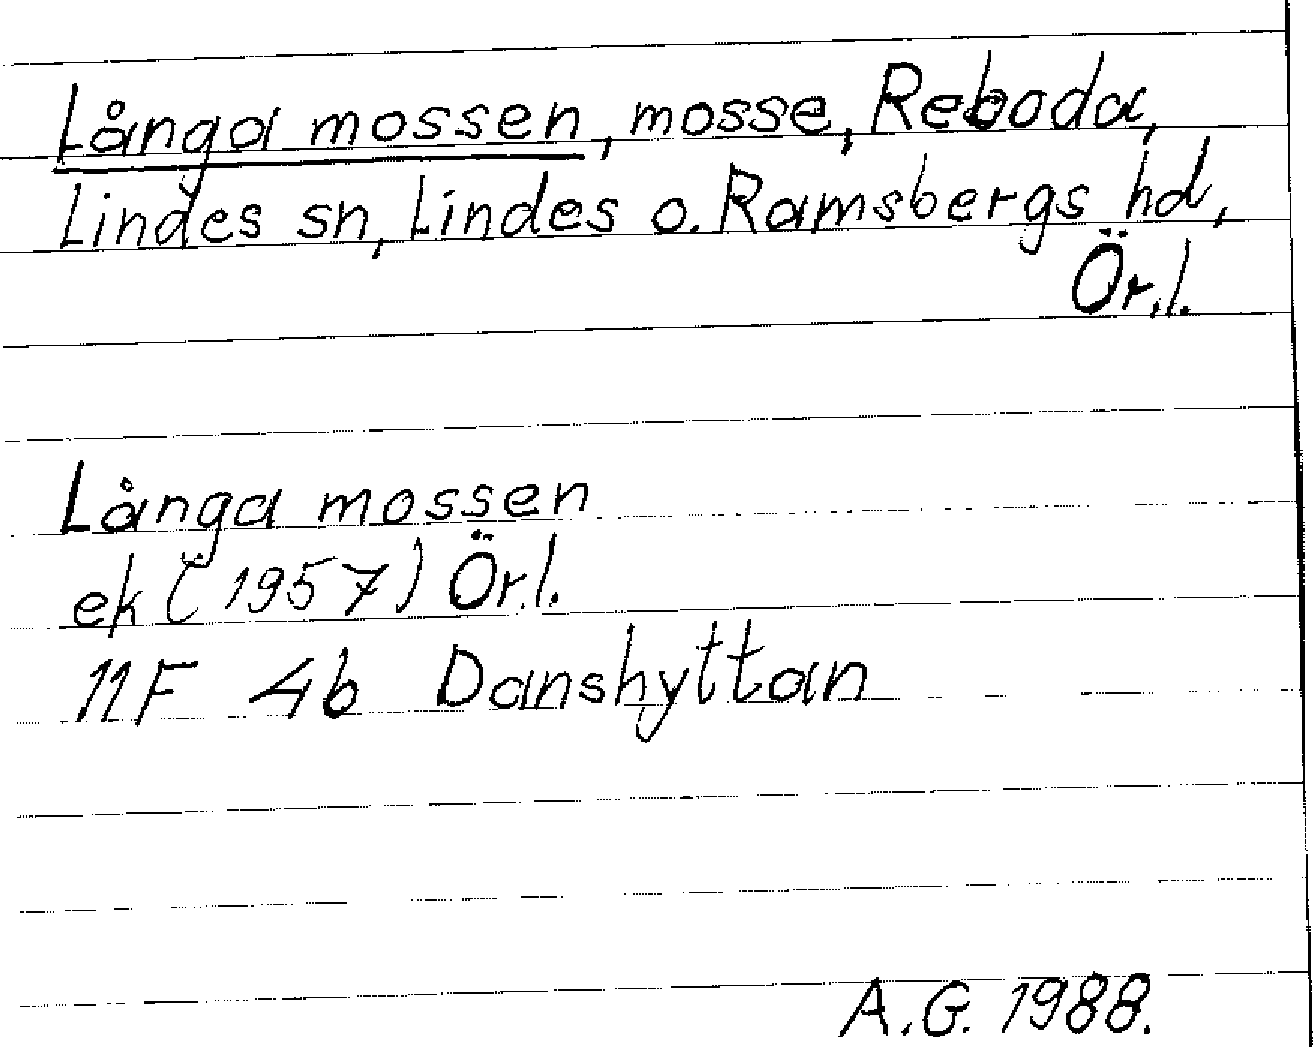 Långa mossen, mosse, Reboda,
Lindes sn, Lindes o. Ramsbergs hd,
Ör.l.
Långa mossen
ek (1957) Ör.l.
11F 4b Danshyttan
A.G. 1988.